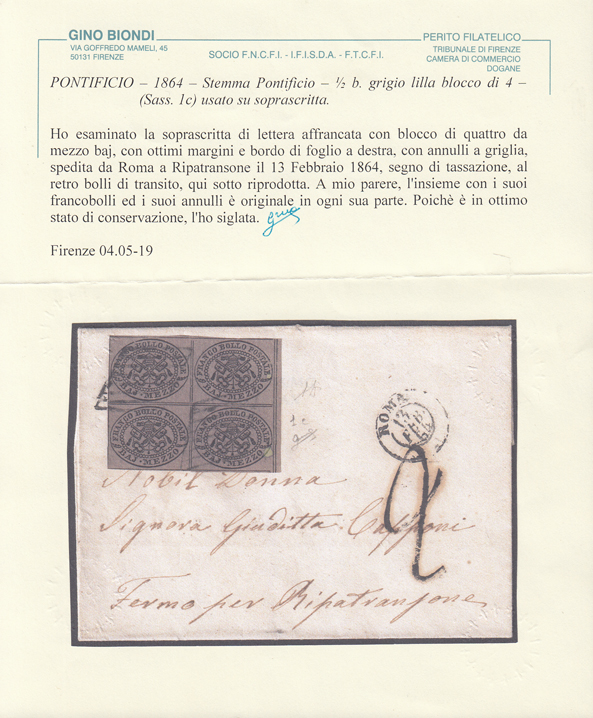 GINO BIONDI
VIA GOFFREDO MAMELI, 45
50131 FIRENZE
SOCIO F.N.C.F.I. - I.F.I.S.D.A. - F.T.C.F.I.
PERITO FILATELICO
TRIBUNALE DI FIRENZE
CAMERA DI COMMERCIO
DOGANE
PONTIFICIO – 1864 – Stemma Pontificio – ½ b. grigio lilla blocco di 4 –
(Sass. 1c) usato su soprascritta.
Ho esaminato la soprascritta di lettera affrancata con blocco di quattro da
mezzo baj, con ottimi margini e bordo di foglio a destra, con annulli a griglia,
spedita da Roma a Ripatransone il 13 Febbraio 1864, segno di tassazione, al
retro bolli di transito, qui sotto riprodotta. A mio parere, l'insieme con i suoi
francobolli ed i suoi annulli è originale in ogni sua parte. Poichè è in ottimo
stato di conservazione, l'ho siglata.
Firenze 04.05-19
FRANCO BOLLO POSTALE
BAJ-MEZZO
FRANCO BOLLO POSTALE
BAJ-MEZZO
FRANCO BOLLO POSTALE
BAJ-MEZZO
FRANCO BOLLO POSTALE
BAJ-MEZZO
1c
ROMA
13
FEB
64
2
Nobil Donna
Signora Giuditta Capponi
Fermo per Ripatransone